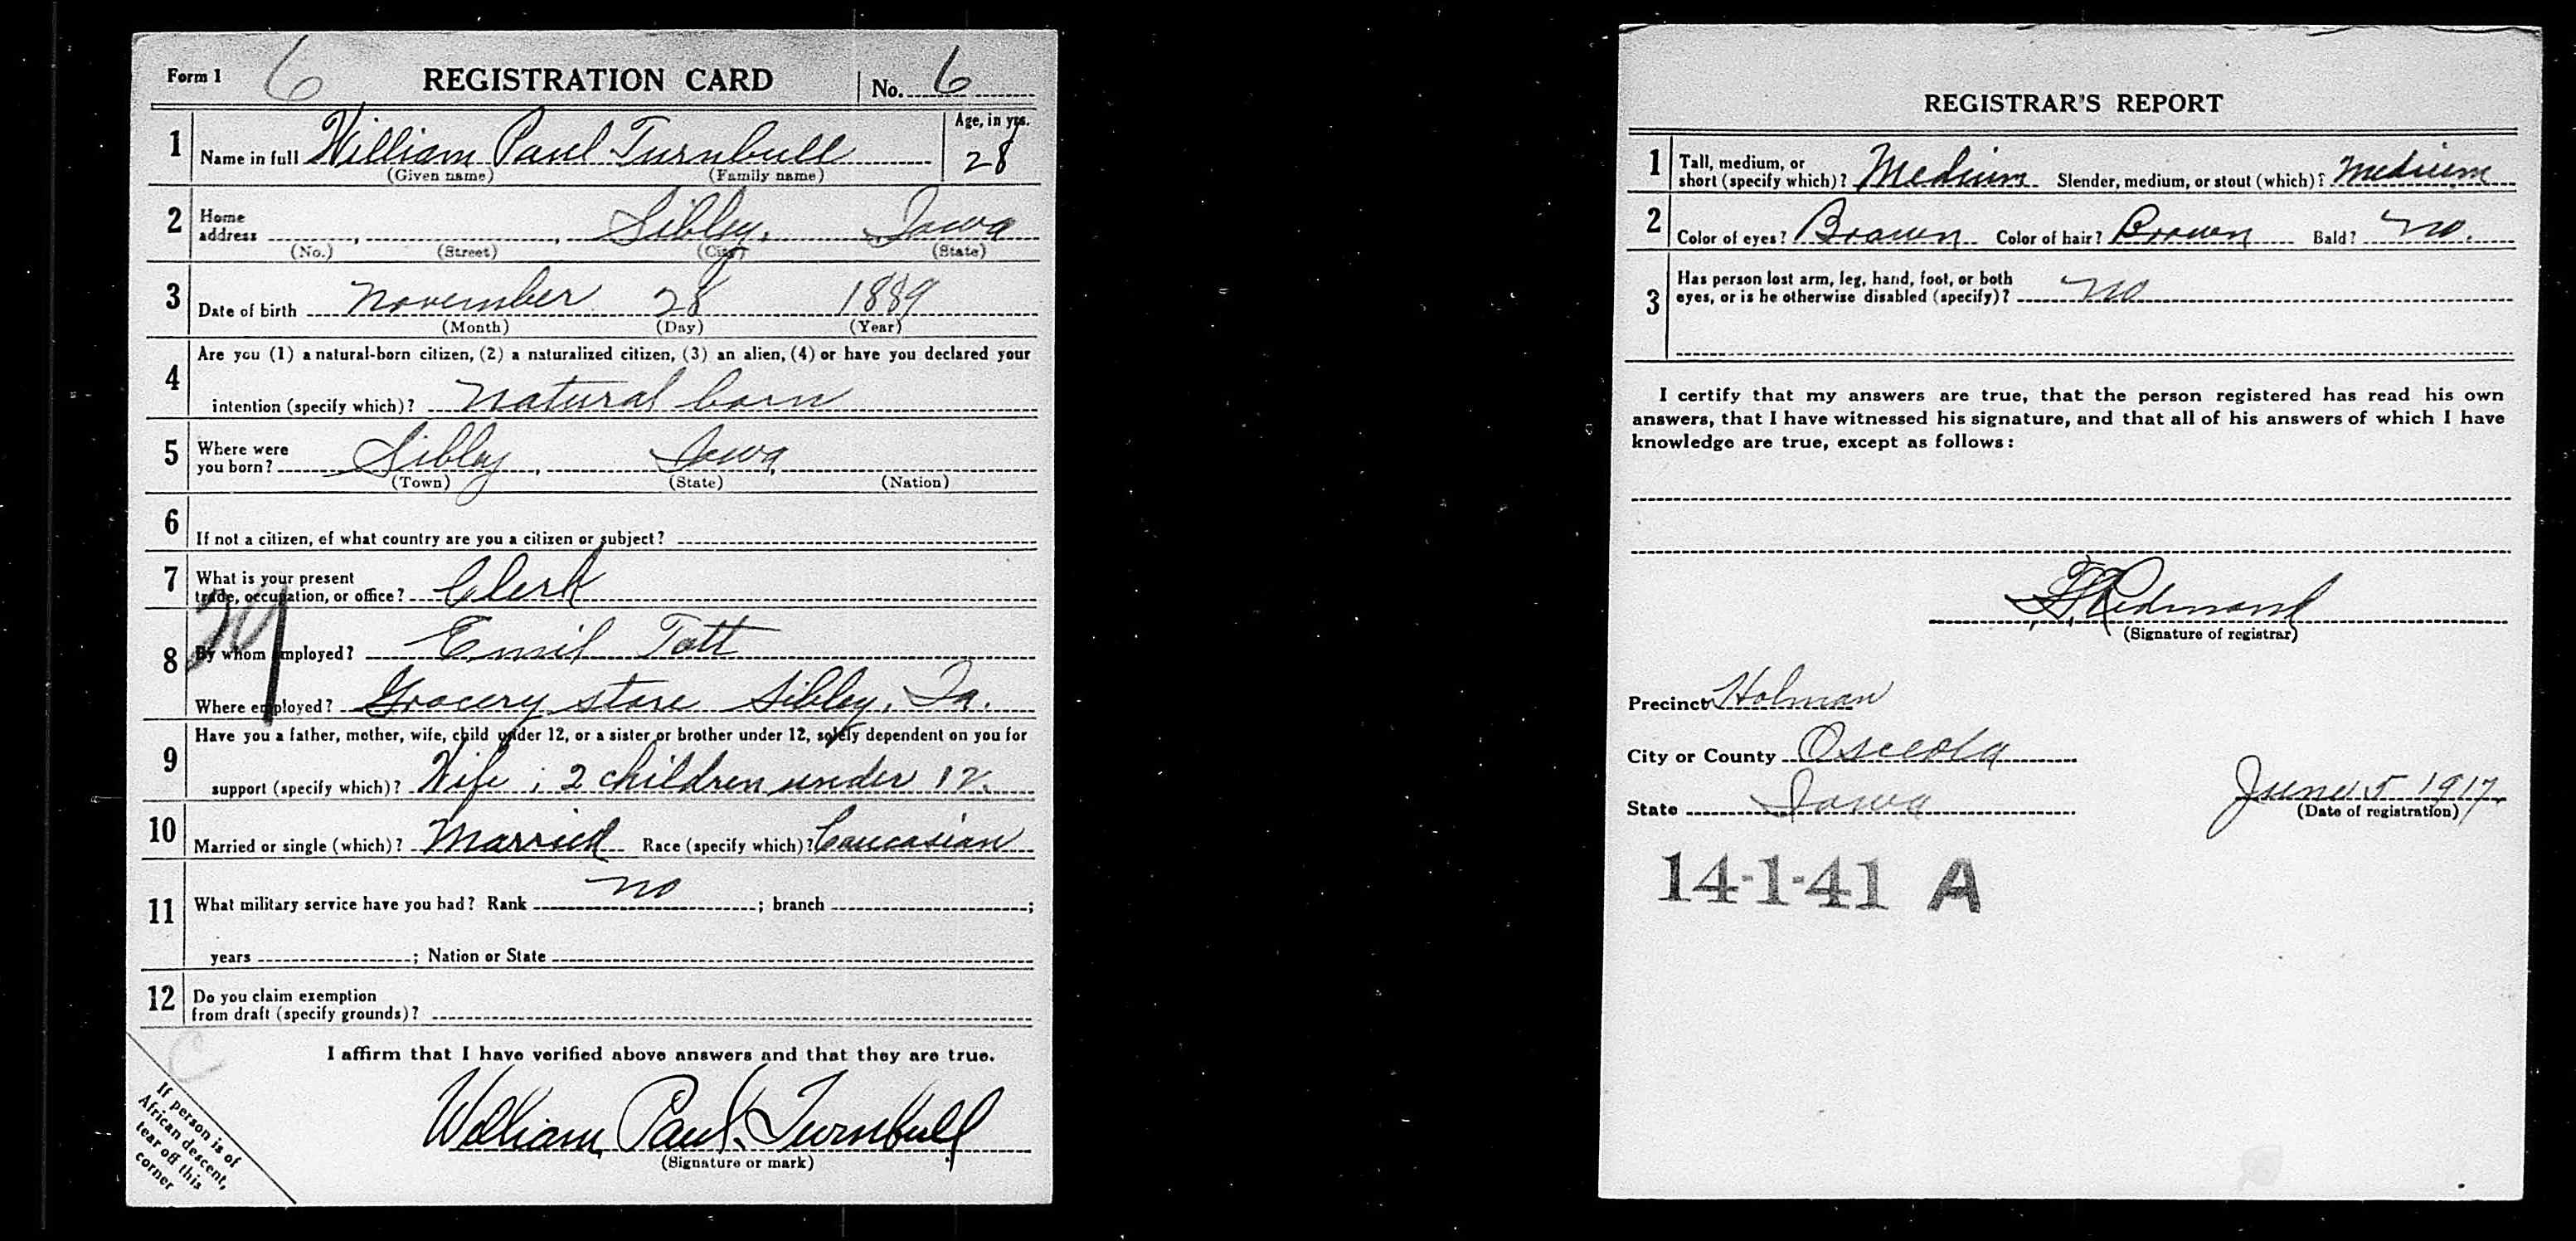 Form 1 6 REGISTRATION CARD No. 6
1 Name in full William Paul Turnbull Age, in yrs. 28
(Given name) (Family name)
2 Home address Sibley, Iowa
(No.) (Street) (City) (State)
3 Date of birth November 28 1889
(Month) (Day) (Year)
4 Are you (1) a natural-born citizen, (2) a naturalized citizen, (3) an alien, (4) or have you declared your
intention (specify which)? Natural born
5 Where were you born? Sibley, Iowa
(Town) (State) (Nation)
6 If not a citizen, of what country are you a citizen or subject?
7 What is your present
trade, occupation, or office? Clerk
8 By whom employed? Emil Tott
Where employed? Grocery store Sibley, Ia.
9 Have you a father, mother, wife, child under 12, or a sister or brother under 12, solely dependent on you for
support (specify which)? Wife; 2 children under 12.
10 Married or single (which)? Married Race (specify which)? Caucasian
11 What military service have you had? Rank no ; branch ;
years ; Nation or State
12 Do you claim exemption
from draft (specify grounds)?
C
I affirm that I have verified above answers and that they are true.
William Paul Turnbull
(Signature or mark)
If person is of
African descent,
tear off this
corner
REGISTRAR'S REPORT
1 Tall, medium, or
short (specify which)? Medium Slender, medium, or stout (which)? Medium
2 Color of eyes? Brown Color of hair? Brown Bald? No.
3 Has person lost arm, leg, hand, foot, or both
eyes, or is he otherwise disabled (specify)? No
I certify that my answers are true, that the person registered has read his own
answers, that I have witnessed his signature, and that all of his answers of which I have
knowledge are true, except as follows:
Redmond
(Signature of registrar)
Precinct Holman
City or County Osceola
State Iowa June 5 1917
(Date of registration)
14-1-41 A